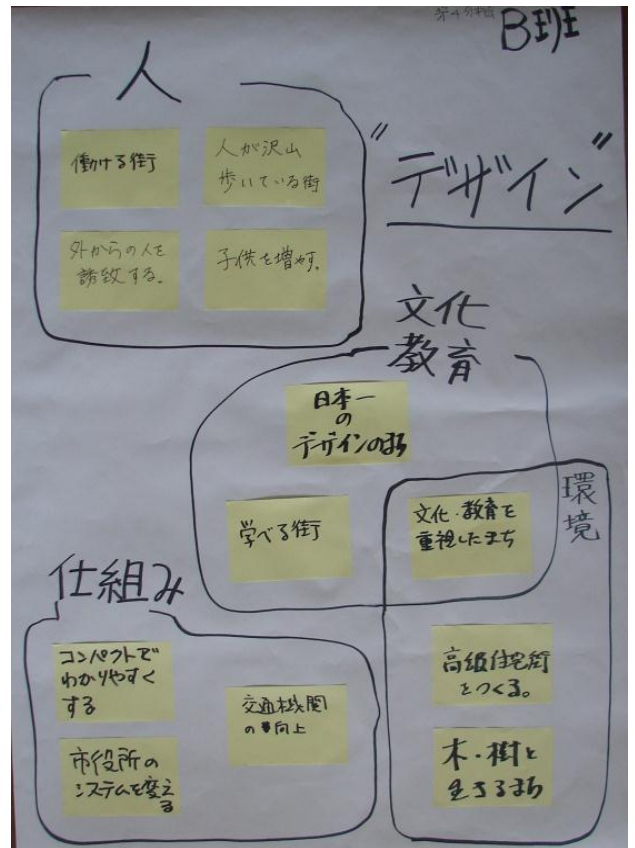 第4分科会
B班
人
働ける街
人が沢山
歩いている街
外からの人を
誘致する。
子供を増やす。
"デザイン"
文化
教育
日本一
の
デザインのまち
学べる街
文化・教育を
重視したまち
環境
高級住宅街
をつくる。
木・樹と
生きるまち
仕組み
コンパクトで
わかりやすく
する
交通機関
の向上
市役所の
システムを変え
る